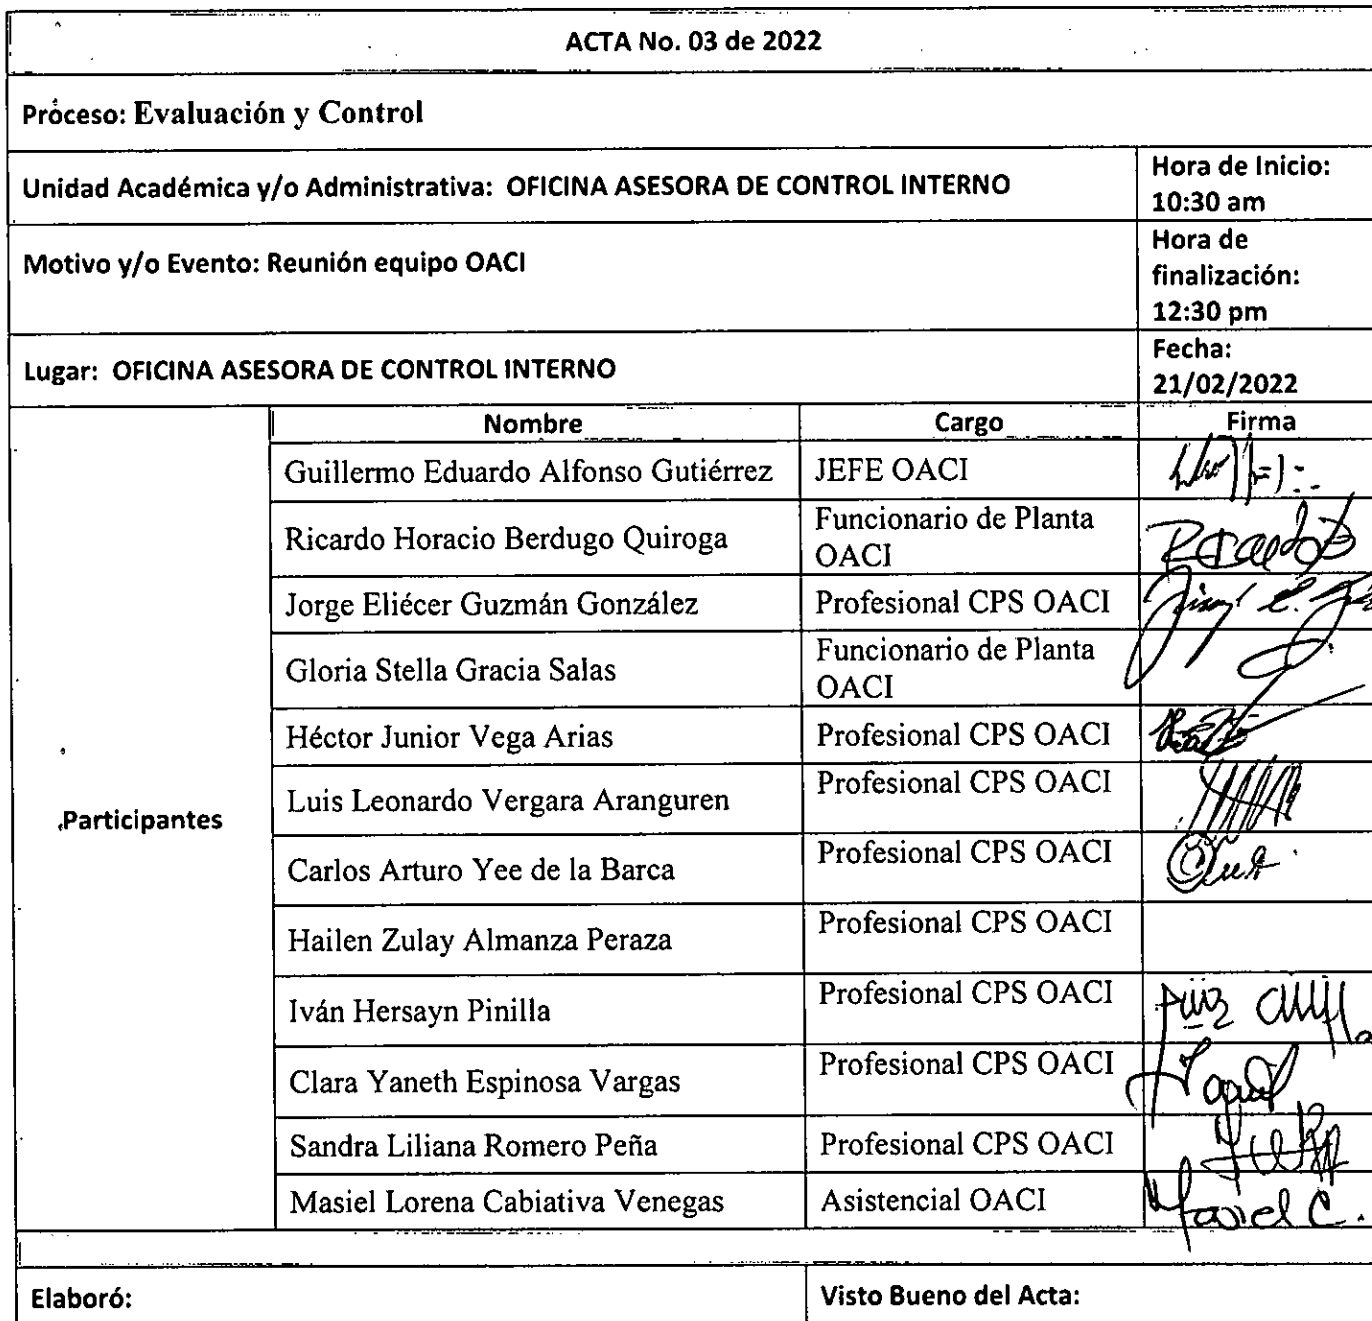 ACTA No. 03 de 2022
Proceso: Evaluación y Control
Unidad Académica y/o Administrativa: OFICINA ASESORA DE CONTROL INTERNO
Hora de Inicio:
10:30 am
Motivo y/o Evento: Reunión equipo OACI
Hora de
finalización:
12:30 pm
Lugar: OFICINA ASESORA DE CONTROL INTERNO
Fecha:
21/02/2022
Participantes
Nombre
Cargo
Firma
Guillermo Eduardo Alfonso Gutiérrez
JEFE OACI
Ricardo Horacio Berdugo Quiroga
Funcionario de Planta
OACI
Jorge Eliécer Guzmán González
Profesional CPS OACI
Gloria Stella Gracia Salas
Funcionario de Planta
OACI
Héctor Junior Vega Arias
Profesional CPS OACI
Luis Leonardo Vergara Aranguren
Profesional CPS OACI
Carlos Arturo Yee de la Barca
Profesional CPS OACI
Hailen Zulay Almanza Peraza
Profesional CPS OACI
Iván Hersayn Pinilla
Profesional CPS OACI
Clara Yaneth Espinosa Vargas
Profesional CPS OACI
Sandra Liliana Romero Peña
Profesional CPS OACI
Masiel Lorena Cabiativa Venegas
Asistencial OACI
Masiel C.
Elaboró:
Visto Bueno del Acta: